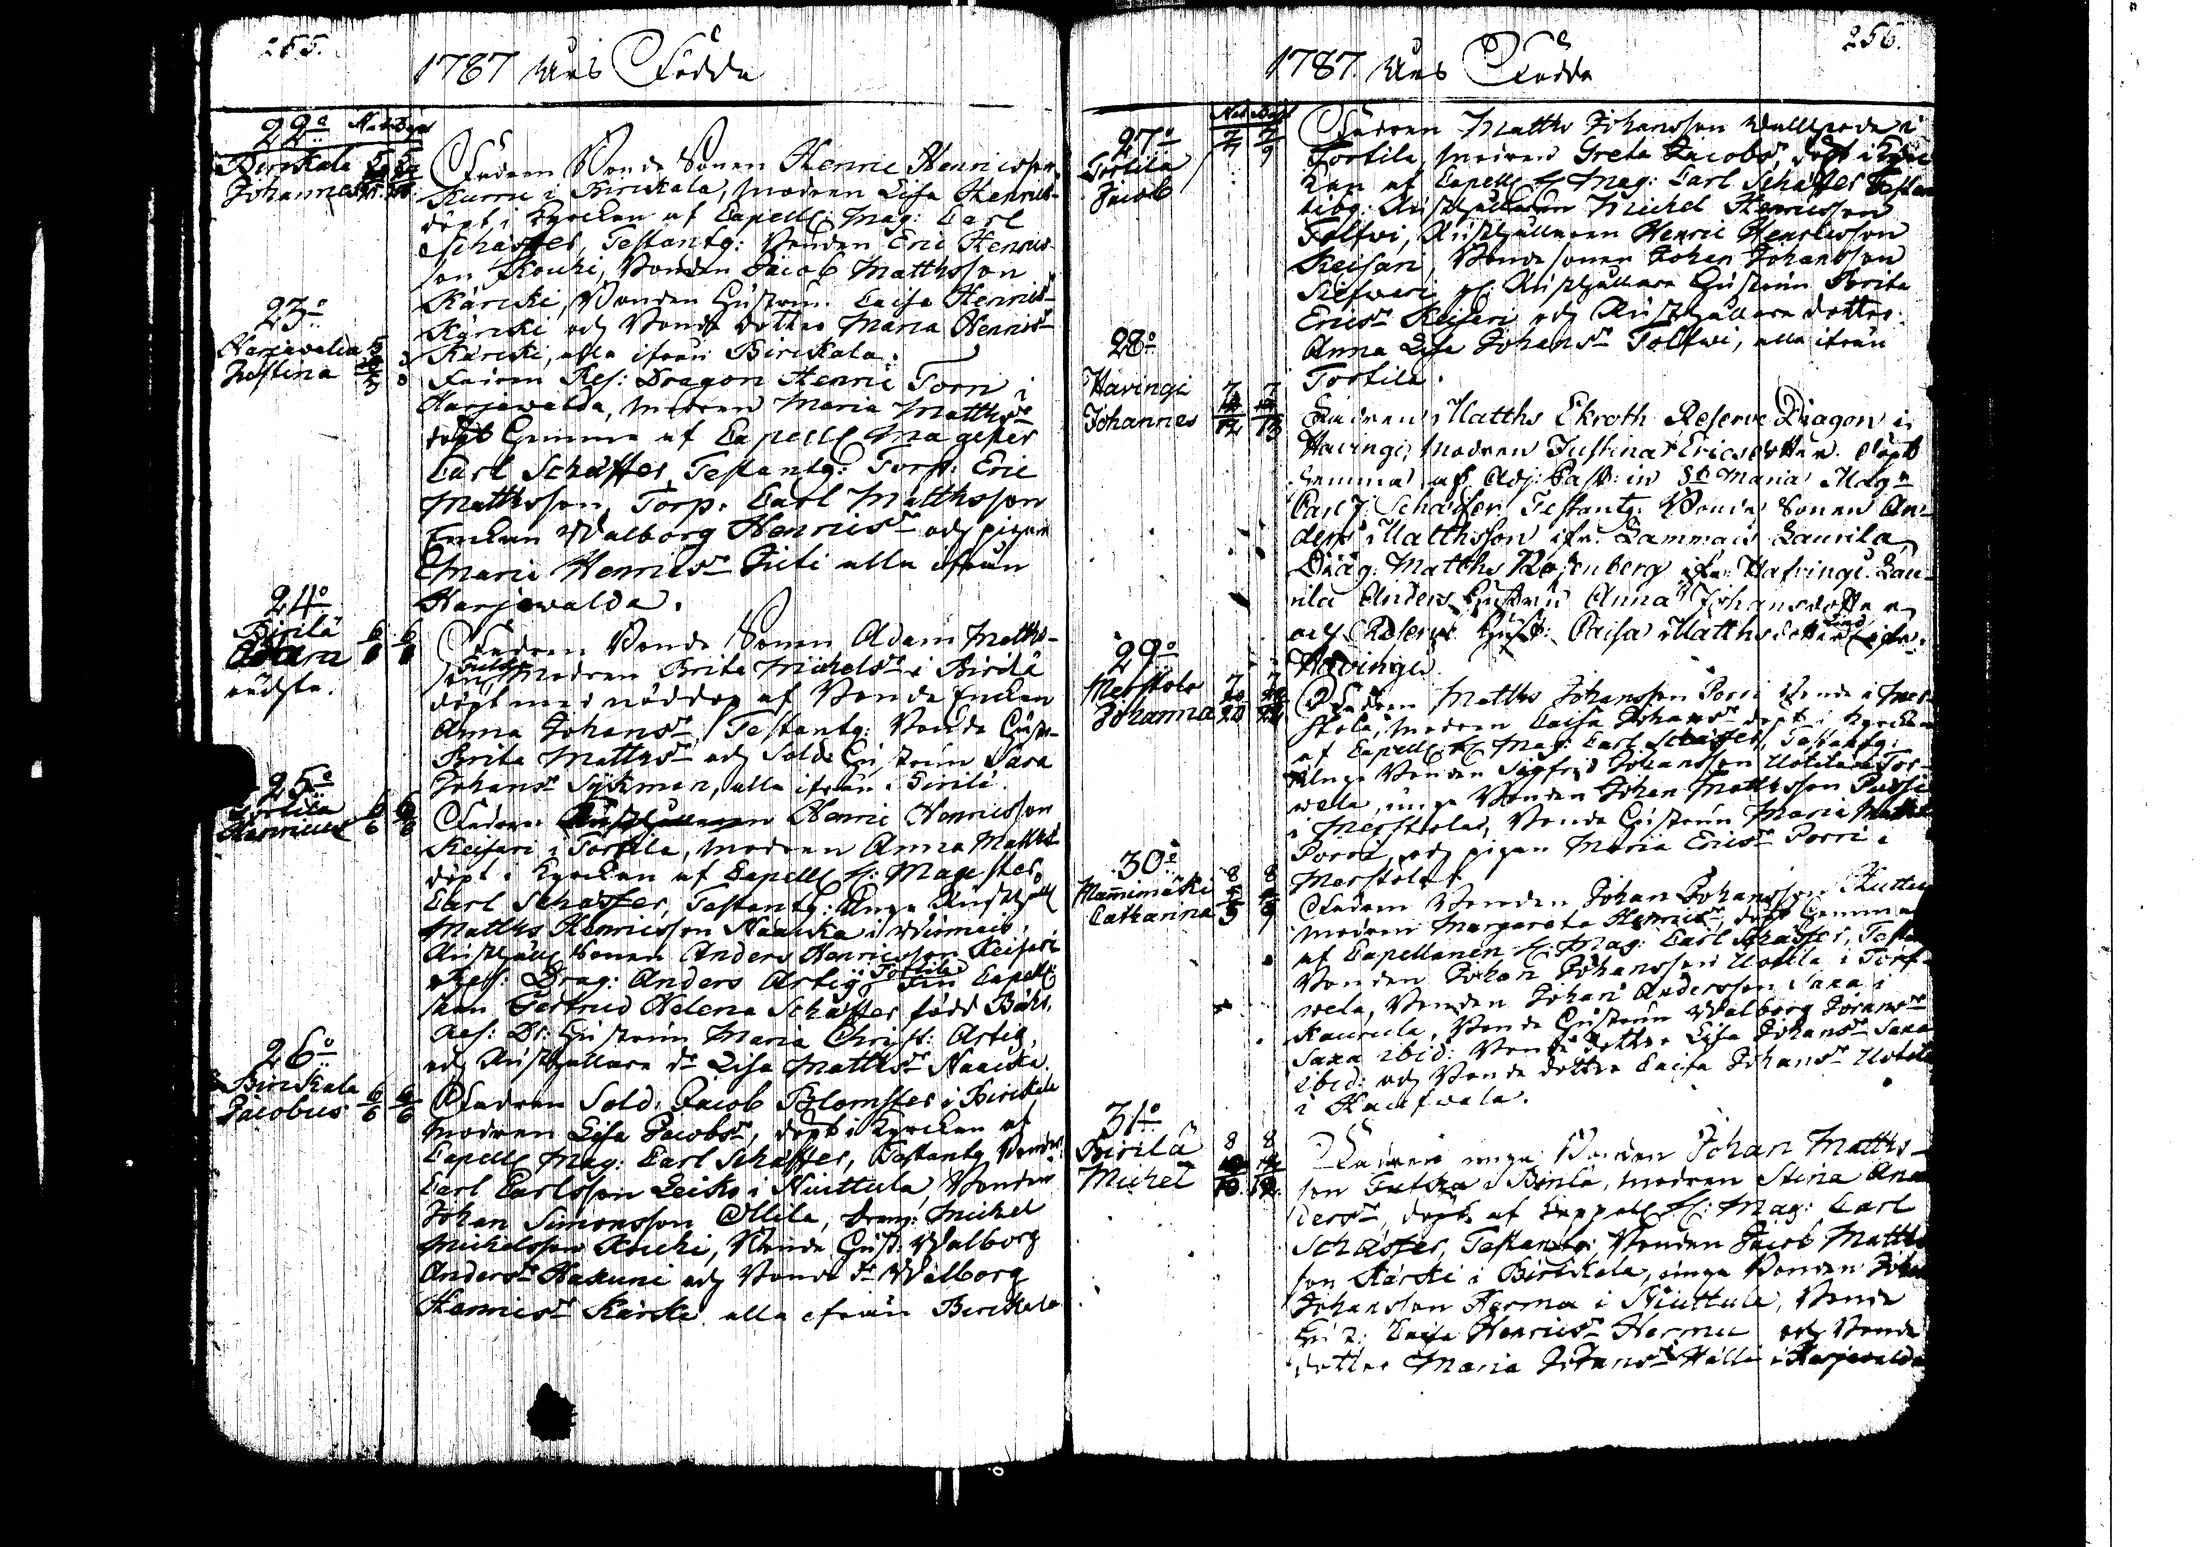 255.
1787 Års Födde
22o Nat. Dop.
Birckala
Johannes
Fadren Bonde Sonen Henric Henricsson
Kurru i Birckala, modren Lisa Henrics-
döpt i Kyrckan af Capell: Mag: Carl
Schæffer, Testantg: Bonden Eric Henrics-
son Kouhi, Bonden Jacob Matthsson
Kärcki, Bonden Hustrun Caisa Henrics-
Kärcki och Bonde dotter Maria Henrics-
Kärcki, alla ifrån Birckala.
23o
Harjawalda
Justina
Fadren Res: Dragon Henric Torn i
Harjawalda, modren Maria Matthsdr
döpt hemma af Capell Magister
Carl Schæffer, Testantg: Torp: Eric
Matthsson, Torp. Carl Matthsson
Enckan Walborg Henricsdr och pigan
Maria Henricsdr Piéti alla ifrån
Harjawalda.
24o
Birilä
Fadren Bonde Sonen Adam Matths-
son modren Brita Michelsdr i Birilä
döpt med nöddop af Bonde Enckan
Anna Johansdr, Testantg: Bonde Hustr-
Brita Matthsdr och Sold: Hustrun Sara
Johansdr Syckman, alla ifrån Birilä.
25o
Torttila
Henricus 6/6 6/8
Fadren Henric Henricsson
Keisari i Torttila, modren Anna Matthsd
döpt i Kyrckan af Capell H: Magister
Carl Schæffer, Testantg: Unga Rusth:
Matths Henricsson Naucka i Wirmais,
Rusthåll Sonen Anders Henricsson Keisari
Res: Drag: Anders Artig Torttila Fru Capell-
skan Gertrud Helena Schæffer född Bähr,
Res: Dr: Hustrun Maria Christ: Artig,
och Rusthållare dr Lisa Matthsdr Naucka.
26o
Birckala
Jacobus 6/6 6/6
Fadren Sold: Jacob Blomster i Birckala
modren Lisa Jacobsdr, döpt i Kyrckan af
Capell Mag: Carl Schæffer, Testantg Bonden
Carl Carlsson Leicko i Niuttula, Bonden
Johan Simonsson Ollila, Dräng: Michel
Michelsson Kouhi, Bonde Hust: Walborg
Andersdr Hakuni och Bonde dr Walborg
Henricsdr Kärcki alla ifrån Birckala
256.
1787 Års Födde
Nat. Dopt
27o
Torttila
Jacob 7/7 7/9
Fadren Matths Johansson i
Torttila, modren Greta Jacobsdr, döpt i Kyrc-
kan af Capell H Mag: Carl Schæffer Testan
tibg: Rusthållaren Michel Henricsson
Tolfwi, Rusthållaren Henric Henricsson
Keisari, Bonde sonen Johan Johansson
Rusthållare Hustrun Brita
Ericsdr Keisari och Rusthållare dotter
Anna Lisa Johansdr Tolfwi, alla ifrån
Torttila.
28o
Havingi
Johannes
Fadren Matths Ekroth Reserve Dragon i
Havingi, modren Justina Ericsdotter. döpt
hemma af Adj: Past: in St Maria Mag
Carl J. Schæffer Testantg. Bonde Sonen An-
ders Matthsson ifr. Lammais Laurila,
Drag: Matths Rosenberg ifr. Hafvingi. Lau-
rila Anders Hustru Anna Johansdotter
och Reserve Hust: Caisa Matthsdotter ifr.
Havingi.
29o
Merstola
Johanna
Fadren Matths Johansson Porri Bonde i Mer
stola, modren Caisa Johansdr döpt i Kyrckan
af Capell H Mag: Carl Schæffer, Testantg:
Unga Bonden Sigfrid Johansson Uotila i Tor-
wela, unga Bonden Johan Matthsson Pussi
i Merstola, Bonde Hustrun Maria Matths
Porri, och pigan Maria Ericsdr Porri i
Merstola.
30o
Mammimäki
Catharina
Fadren Bonden Johan Johansson
modren Margareta Henricsdr, döpt hemma
af Capellanen H: Mag: Carl Schæffer, Testa
Bonden Johan Johansson Uotila i Torfa
wela, Bonden Johan Andersson Saxa i
Kaurula, Bonde Hustrun Walborg Johansdr
Saxa ibid: Bonde dotter Lisa Johansdr Saxa
ibid: och Bonde dotter Caisa Johansdr Uotila
31o
Birilä
Michel
Fadren unga Bonden Johan Matths-
son i Birilä, modren Stina An
dersdr, döpt af Cappell H: Mag: Carl
Schæffer, Testantg: Bonden Jacob Matths
son Kärcki i Birckala, unga Bonden Joha
Johansson Herma i Niuttula, Bonde
Caisa Henricsdr Hermu och Bonde
dotter Maria Johansdr Hälli i Harjawalda